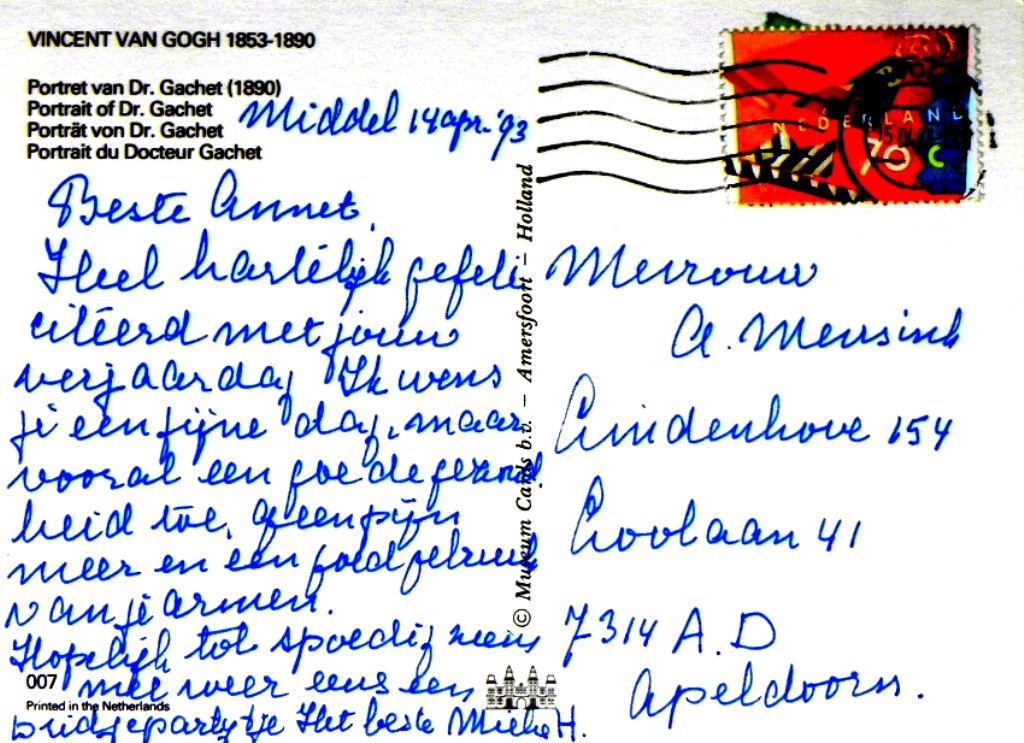 VINCENT VAN GOGH 1853-1890
Portret van Dr. Gachet (1890)
Portrait of Dr. Gachet
Porträt von Dr. Gachet
Portrait du Docteur Gachet
Middel 14 apr. '93
Beste Annet,
Heel hartelijk gefeli
citeerd met jouw
verjaardag Ik wens
je een fijne dag, maar
vooral een goede gezond
heid toe, geen pijn
meer en een goed gebruik
van je armen.
Hopelijk tot spoedig
mee weer eens een
bridgepartijtje Het beste H.
007
Printed in the Netherlands
© Museum Cards b.v. – Amersfoort – Holland
NEDERLAND
70 c
Mevrouw
A. Mensink
Lindenhove 154
Loolaan 41
7314 A.D
Apeldoorn.